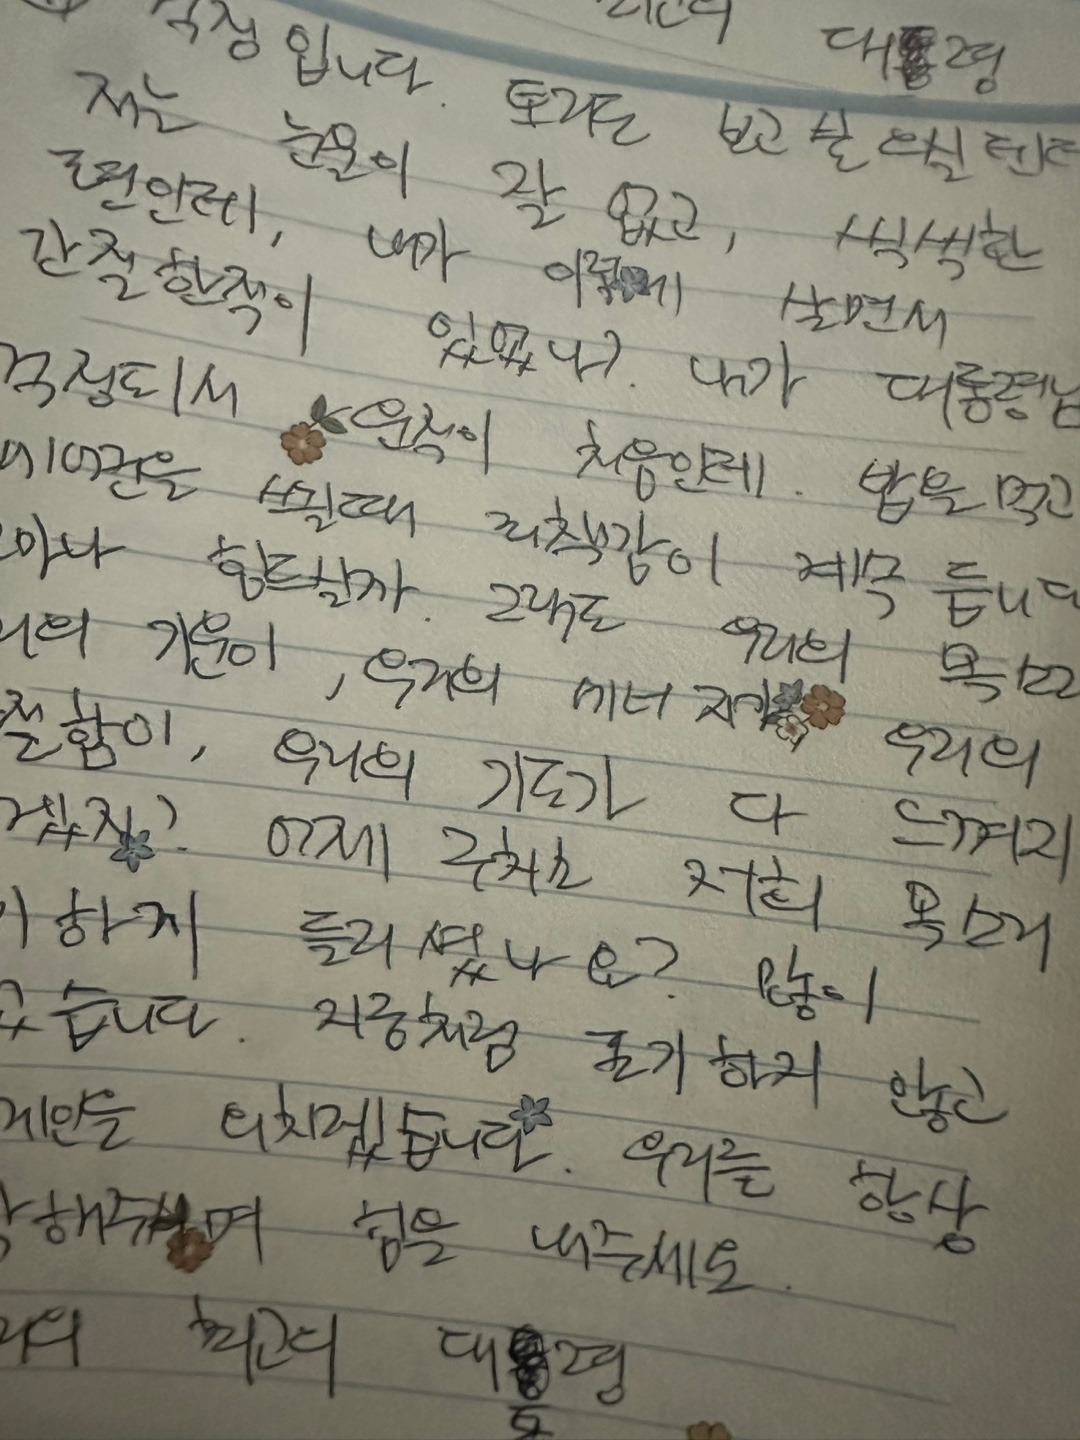 최고의 대통령
걱정 입니다. 토리는 보고 싶 으실 텐데
저는 눈물이 잘 없고, 씩씩한
편인데, 내가 이렇게 살면서
간절한적이 있었나?. 내가 대통령님
걱정되서 운적이 처음인데. 밥을 먹고
에어컨을 쐴때 죄책감이 계속 듭니다
얼마나 힘드실까. 그래도 우리의 목소리
우리의 기운이, 우리의 에너지가 우리의
간절함이, 우리의 기도가 다 느껴지
겠지? 어제 구치소 저희 목소리
하게 들리셨나요? 많이
습니다. 지금처럼 포기하지 않고
계엔을 외치겠습니다. 우리를 항상
각해주시며 힘을 내주세요.
우리의 최고의 대통령